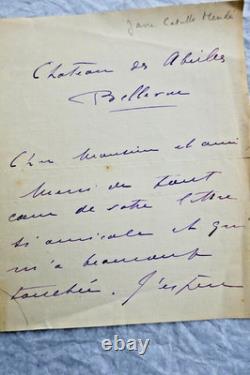 Jane Catulle Mendès
Chateau des Abeilles
Bellevue
Cher Monsieur et ami
Merci de tout
coeur de votre lettre
si amicale et qui
m'a beaucoup
touchée. J'espère
© www.worthpoint.com